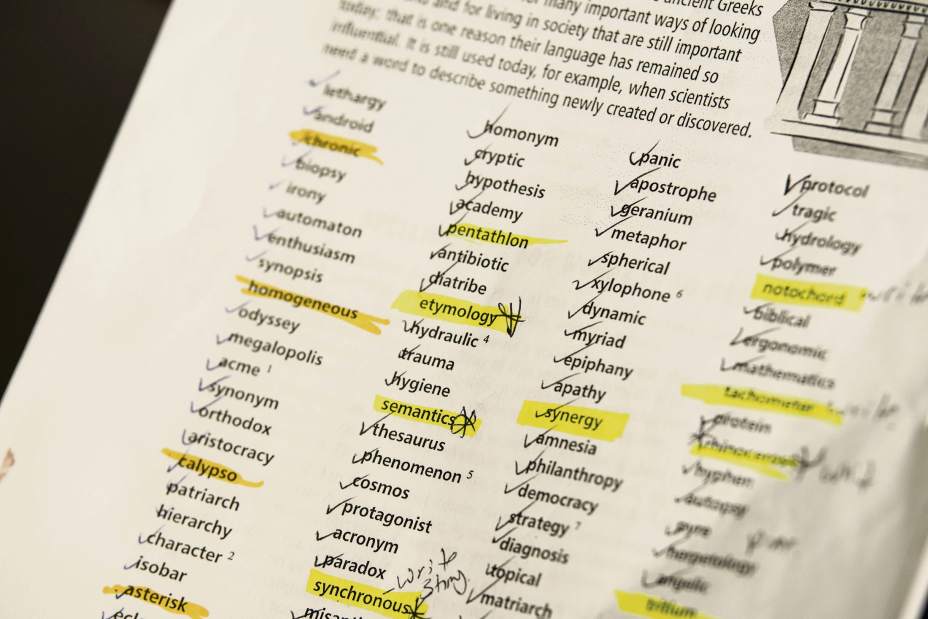 ancient Greeks
and for living in society that are still important
many important ways of looking
today; that is one reason their language has remained so
influential. It is still used today, for example, when scientists
need a word to describe something newly created or discovered.
lethargy
android
chronic
biopsy
irony
automaton
enthusiasm
synopsis
homogeneous
odyssey
megalopolis
acme 1
synonym
orthodox
aristocracy
calypso
patriarch
hierarchy
character 2
isobar
asterisk
homonym
cryptic
hypothesis
academy
pentathlon
antibiotic
diatribe
etymology
hydraulic 4
trauma
hygiene
semantics
thesaurus
phenomenon 5
cosmos
protagonist
acronym
paradox
write
synchronous
panic
apostrophe
geranium
metaphor
spherical
xylophone 6
dynamic
myriad
epiphany
apathy
synergy
amnesia
philanthropy
democracy
strategy 7
diagnosis
topical
matriarch
protocol
tragic
hydrology
polymer
notochord
biblical
ergonomic
mathematics
tachometer
protein
rhinoceros
hyphen
autopsy
pyre
herpetology
ampule
trillium